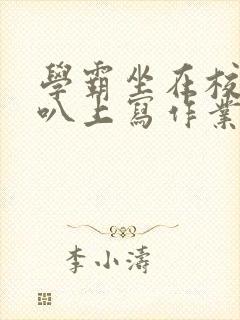 學霸坐在校
叭上寫作業
李小濤